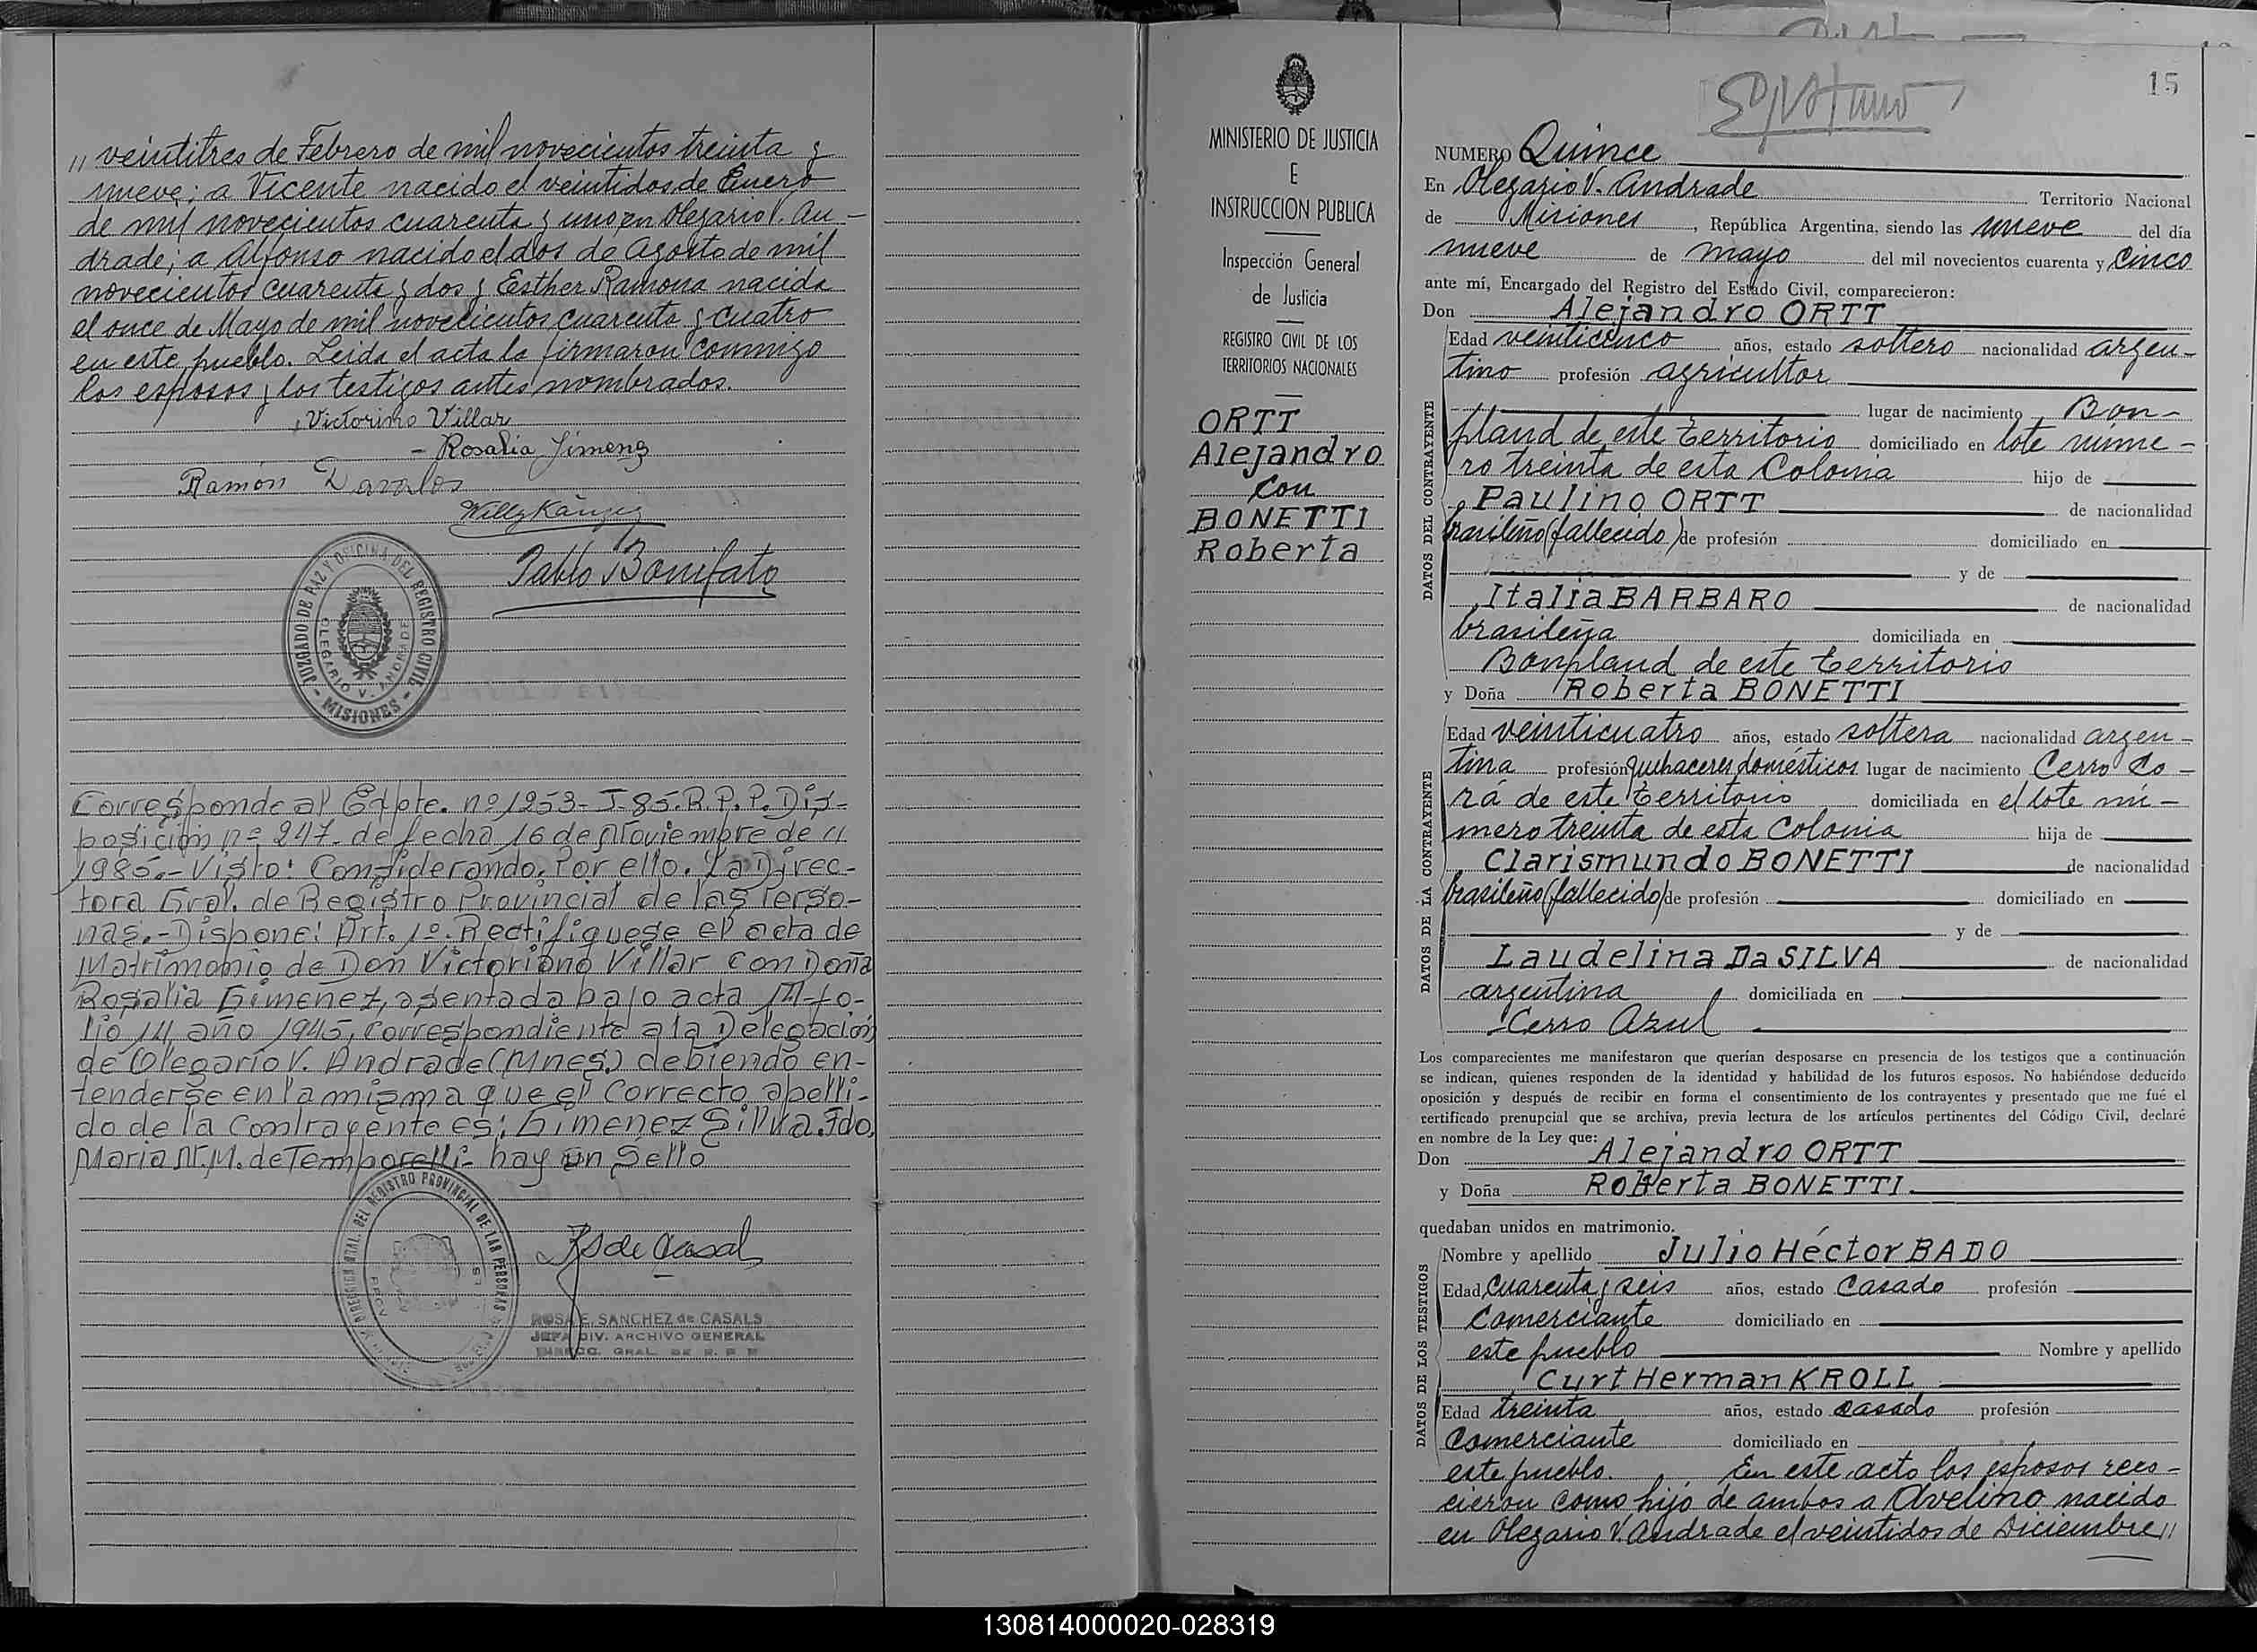 " veintitres de Febrero de mil novecientos treinta y
nueve; a Vicente nacido el veintidos de Enero
de mil novecientos cuarenta y uno en Olegario V. An-
drade; a Alfonso nacido el dos de Agosto de mil
novecientos cuarenta y dos y Esther Ramona nacida
el once de Mayo de mil novecientos cuarenta y cuatro
en este pueblo. Leida el acta la firmaron conmigo
los esposos y los testigos antes nombrados.
Victorino Villar
- Rosalia Jimenez
Ramón Davalos
Willy Känzig
Pablo Bonifato
JUZGADO DE PAZ Y OFICINA DEL REGISTRO CIVIL
OLEGARIO V. ANDRADE
- MISIONES -
Corresponde al Expte. nº 1253-J-85.R.P.P. Dis-
posición nº 247. de fecha 16 de Noviembre de "
1985.- Visto: Considerando. Por ello. La Direc-
tora Gral. de Registro Provincial de las Perso-
nas.- Dispone: Art. 1º. Rectifiquese el acta de
Matrimonio de Don Victoriano Villar con Doña
Rosalia Gimenez, asentada bajo acta 14-fo-
lio 14, año 1945, correspondiente a la Delegación
de Olegario V. Andrade (Mnes.) debiendo en-
tenderse en la misma que el correcto apelli-
do de la contrayente es: Gimenez Silva. Fdo.
Maria N.M. de Temporelli- hay un Sello
REGISTRO PROVINCIAL DE LAS PERSONAS
RS de Casal
ROSA E. SANCHEZ de CASALS
JEFA DIV. ARCHIVO GENERAL
DIRECC. GRAL. DE R. P. P.
MINISTERIO DE JUSTICIA
E
INSTRUCCION PUBLICA
Inspección General
de Justicia
REGISTRO CIVIL DE LOS
TERRITORIOS NACIONALES
ORTT
Alejandro
con
BONETTI
Roberta
15
NUMERO Quince
En Olegario V. Andrade Territorio Nacional
de Misiones, República Argentina, siendo las nueve del día
nueve de mayo del mil novecientos cuarenta y cinco
ante mí, Encargado del Registro del Estado Civil, comparecieron:
Don Alejandro ORTT
DATOS DEL CONTRAYENTE
Edad veinticinco años, estado soltero nacionalidad argen-
tino profesión agricultor
lugar de nacimiento Bon-
pland de este territorio domiciliado en lote núme-
ro treinta de esta Colonia hijo de
Paulino ORTT de nacionalidad
brasileño (fallecido) de profesión domiciliado en
y de
Italia BARBARO de nacionalidad
brasileña domiciliada en
Bonpland de este territorio
y Doña Roberta BONETTI
DATOS DE LA CONTRAYENTE
Edad veinticuatro años, estado soltera nacionalidad argen-
tina profesión quehaceres domésticos lugar de nacimiento Cerro Co-
rá de este territorio domiciliada en el lote nú-
mero treinta de esta Colonia hija de
Clarismundo BONETTI de nacionalidad
brasileño (fallecido) de profesión domiciliado en
y de
Laudelina Da SILVA de nacionalidad
argentina domiciliada en
Cerro Azul
Los comparecientes me manifestaron que querían desposarse en presencia de los testigos que a continuación
se indican, quienes responden de la identidad y habilidad de los futuros esposos. No habiéndose deducido
oposición y después de recibir en forma el consentimiento de los contrayentes y presentado que me fué el
certificado prenupcial que se archiva, previa lectura de los artículos pertinentes del Código Civil, declaré
en nombre de la Ley que:
Don Alejandro ORTT
y Doña Roberta BONETTI.
quedaban unidos en matrimonio.
DATOS DE LOS TESTIGOS
Nombre y apellido Julio Héctor BADO
Edad cuarenta y seis años, estado casado profesión
comerciante domiciliado en
este pueblo Nombre y apellido
Curt Herman KROLL
Edad treinta años, estado casado profesión
comerciante domiciliado en
este pueblo. En este acto los esposos reco-
cieron como hijo de ambos a Avelino nacido
en Olegario V. Andrade el veintidos de Diciembre "
130814000020-028319